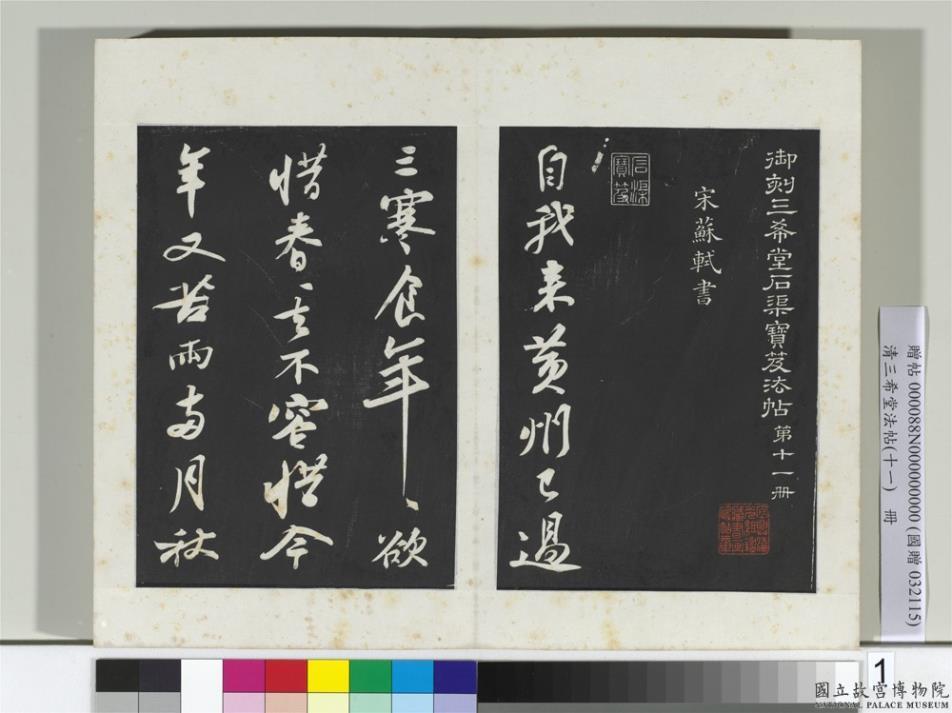 御刻三希堂石渠寶笈法帖第十一册
宋蘇軾書
石渠寶笈
自我来黄州已過
三寒食年〻欲
惜春〻去不容惜今
年又苦雨两月秋
贈帖 000088N000000000 (國贈 032115)
清三希堂法帖(十一) 冊
1
國立故宮博物院
NATIONAL PALACE MUSEUM